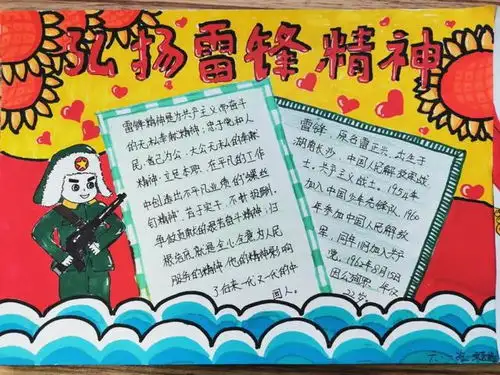 弘扬雷锋精神
雷锋精神是为共产主义而奋斗
的无私奉献精神；忠于党和人
民、舍己为公、大公无私的奉献
精神；立足本职、在平凡的工作
中创造出不平凡业绩的“螺丝
钉精神”，苦于实干、不计报酬、
争做贡献的艰苦奋斗精神，归
根结底就是全心全意为人民
服务的精神，他的精神影响
了后来一代又一代的中
国人。
雷锋，原名雷正兴，出生于
湖南长沙，中国人民解放军战
士，共产主义战士。1954年
加入中国少年先锋队，1960
年参加中国人民解放
军，同年11月加入共产
党。1962年8月15日
因公殉职，年仅
22岁。